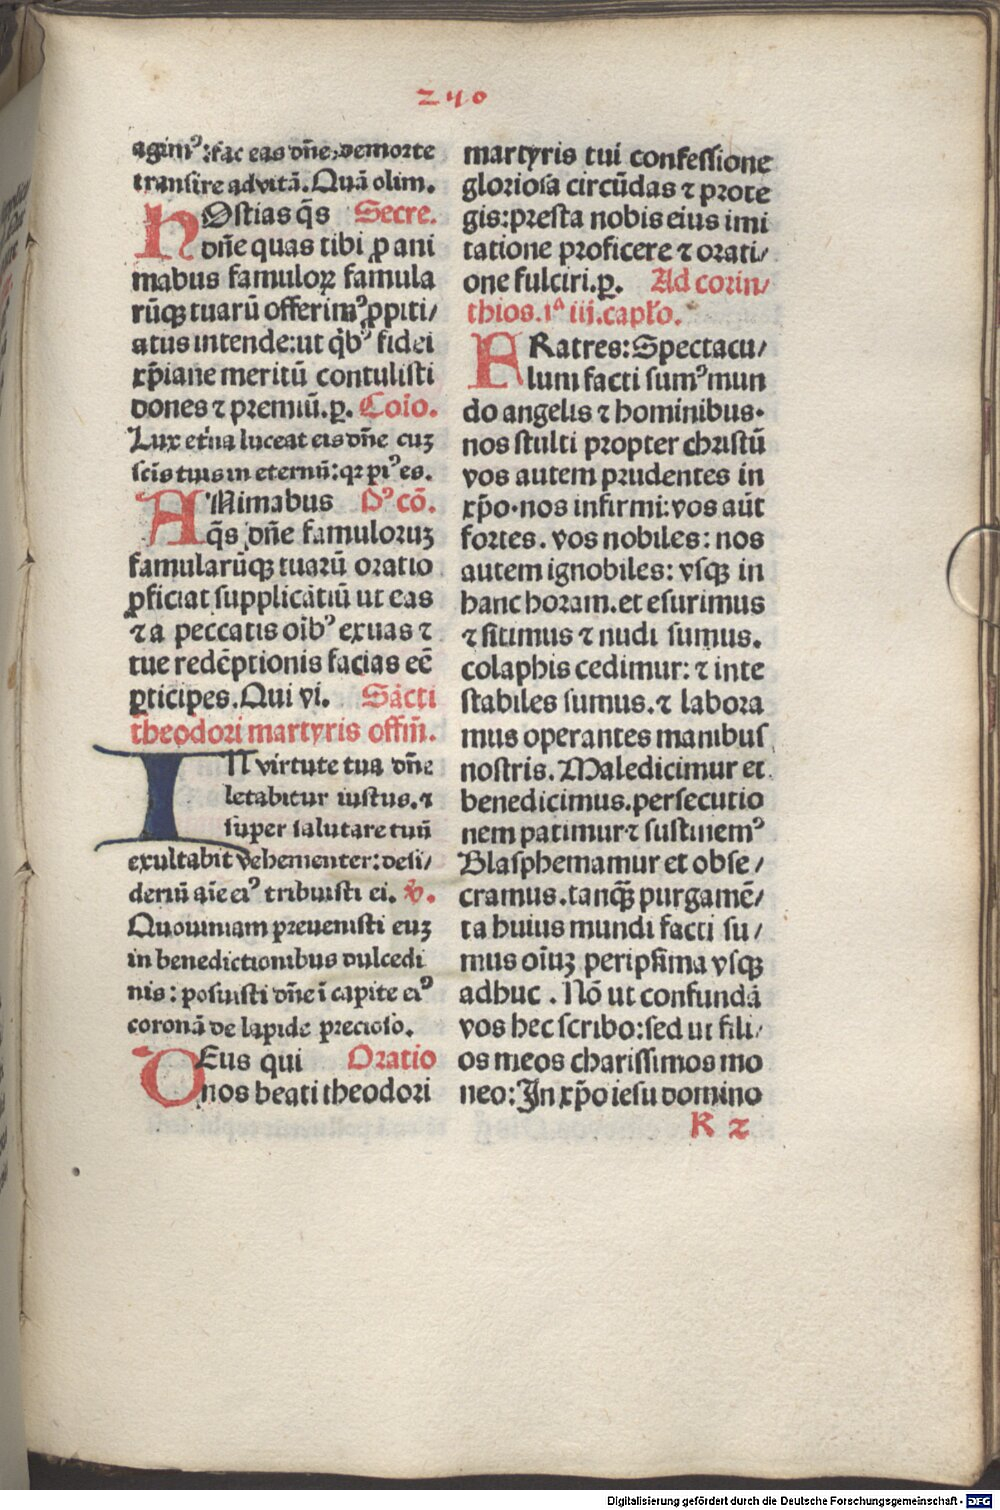 240
agimꝰ:fac eas dñe, de morte
transire ad vitã. Quã olim.
HOstias q̃s Secre.
dñe quas tibi ꝓ ani
mabus famuloꝝ famula
rũqꝫ tuarũ offerimꝰ ꝓpiti/
atus intende: ut q̃bꝰ fidei
xp̃iane meritũ contulisti
dones ⁊ premiũ. p̱. Coĩo.
Lux et'na luceat eis dñe cuꝫ
scĩs tuis in eternũ: qꝛ piꝰ es.
ANimabus Pꝰ cõ.
q̃s dñe famuloruꝫ
famularũqꝫ tuarũ oratio
ꝓficiat supplicãtiũ ut eas
⁊ a peccatis oĩbꝰ exuas ⁊
tue redẽptionis facias eẽ
ꝑticipes. Qui vi. Sãcti
theodori martyris offm̃.
IN virtute tua dñe
letabitur iustus. ⁊
super salutare tuũ
exultabit vehementer: desi/
deriũ aĩe eiꝰ tribuisti ei. ℣.
Quoniam preuenisti euꝫ
in benedictionibus dulcedi
nis: posuisti dñe ĩ capite eiꝰ
coronã de lapide precioso.
DEus qui Oratio
nos beati theodori
martyris tui confessione
gloriosa circũdas ⁊ prote
gis: presta nobis eius imi
tatione proficere ⁊ orati/
one fulciri. p̱. Ad corin/
thios. 1ª iiij. capło.
FRatres: Spectacu/
lum facti sumꝰ mun
do angelis ⁊ hominibus.
nos stulti propter christũ
vos autem prudentes in
xp̃o. nos infirmi: vos aũt
fortes. vos nobiles: nos
autem ignobiles: vsqꝫ in
hanc horam. et esurimus
⁊ sitimus ⁊ nudi sumus.
colaphis cedimur: ⁊ inte
stabiles sumus. ⁊ labora
mus operantes manibus
nostris. Maledicimur et
benedicimus. persecutio
nem patimur ⁊ sustinemꝰ
Blasphemamur et obse/
cramus. tanqꝫ̃ purgamẽ/
ta huius mundi facti su/
mus oĩuꝫ peripsima vsqꝫ
adhuc. Nõ ut confundã
vos hec scribo: sed ut fili/
os meos charissimos mo
neo: In xp̃o iesu domino
R 2
Digitalisierung gefördert durch die Deutsche Forschungsgemeinschaft - DFG